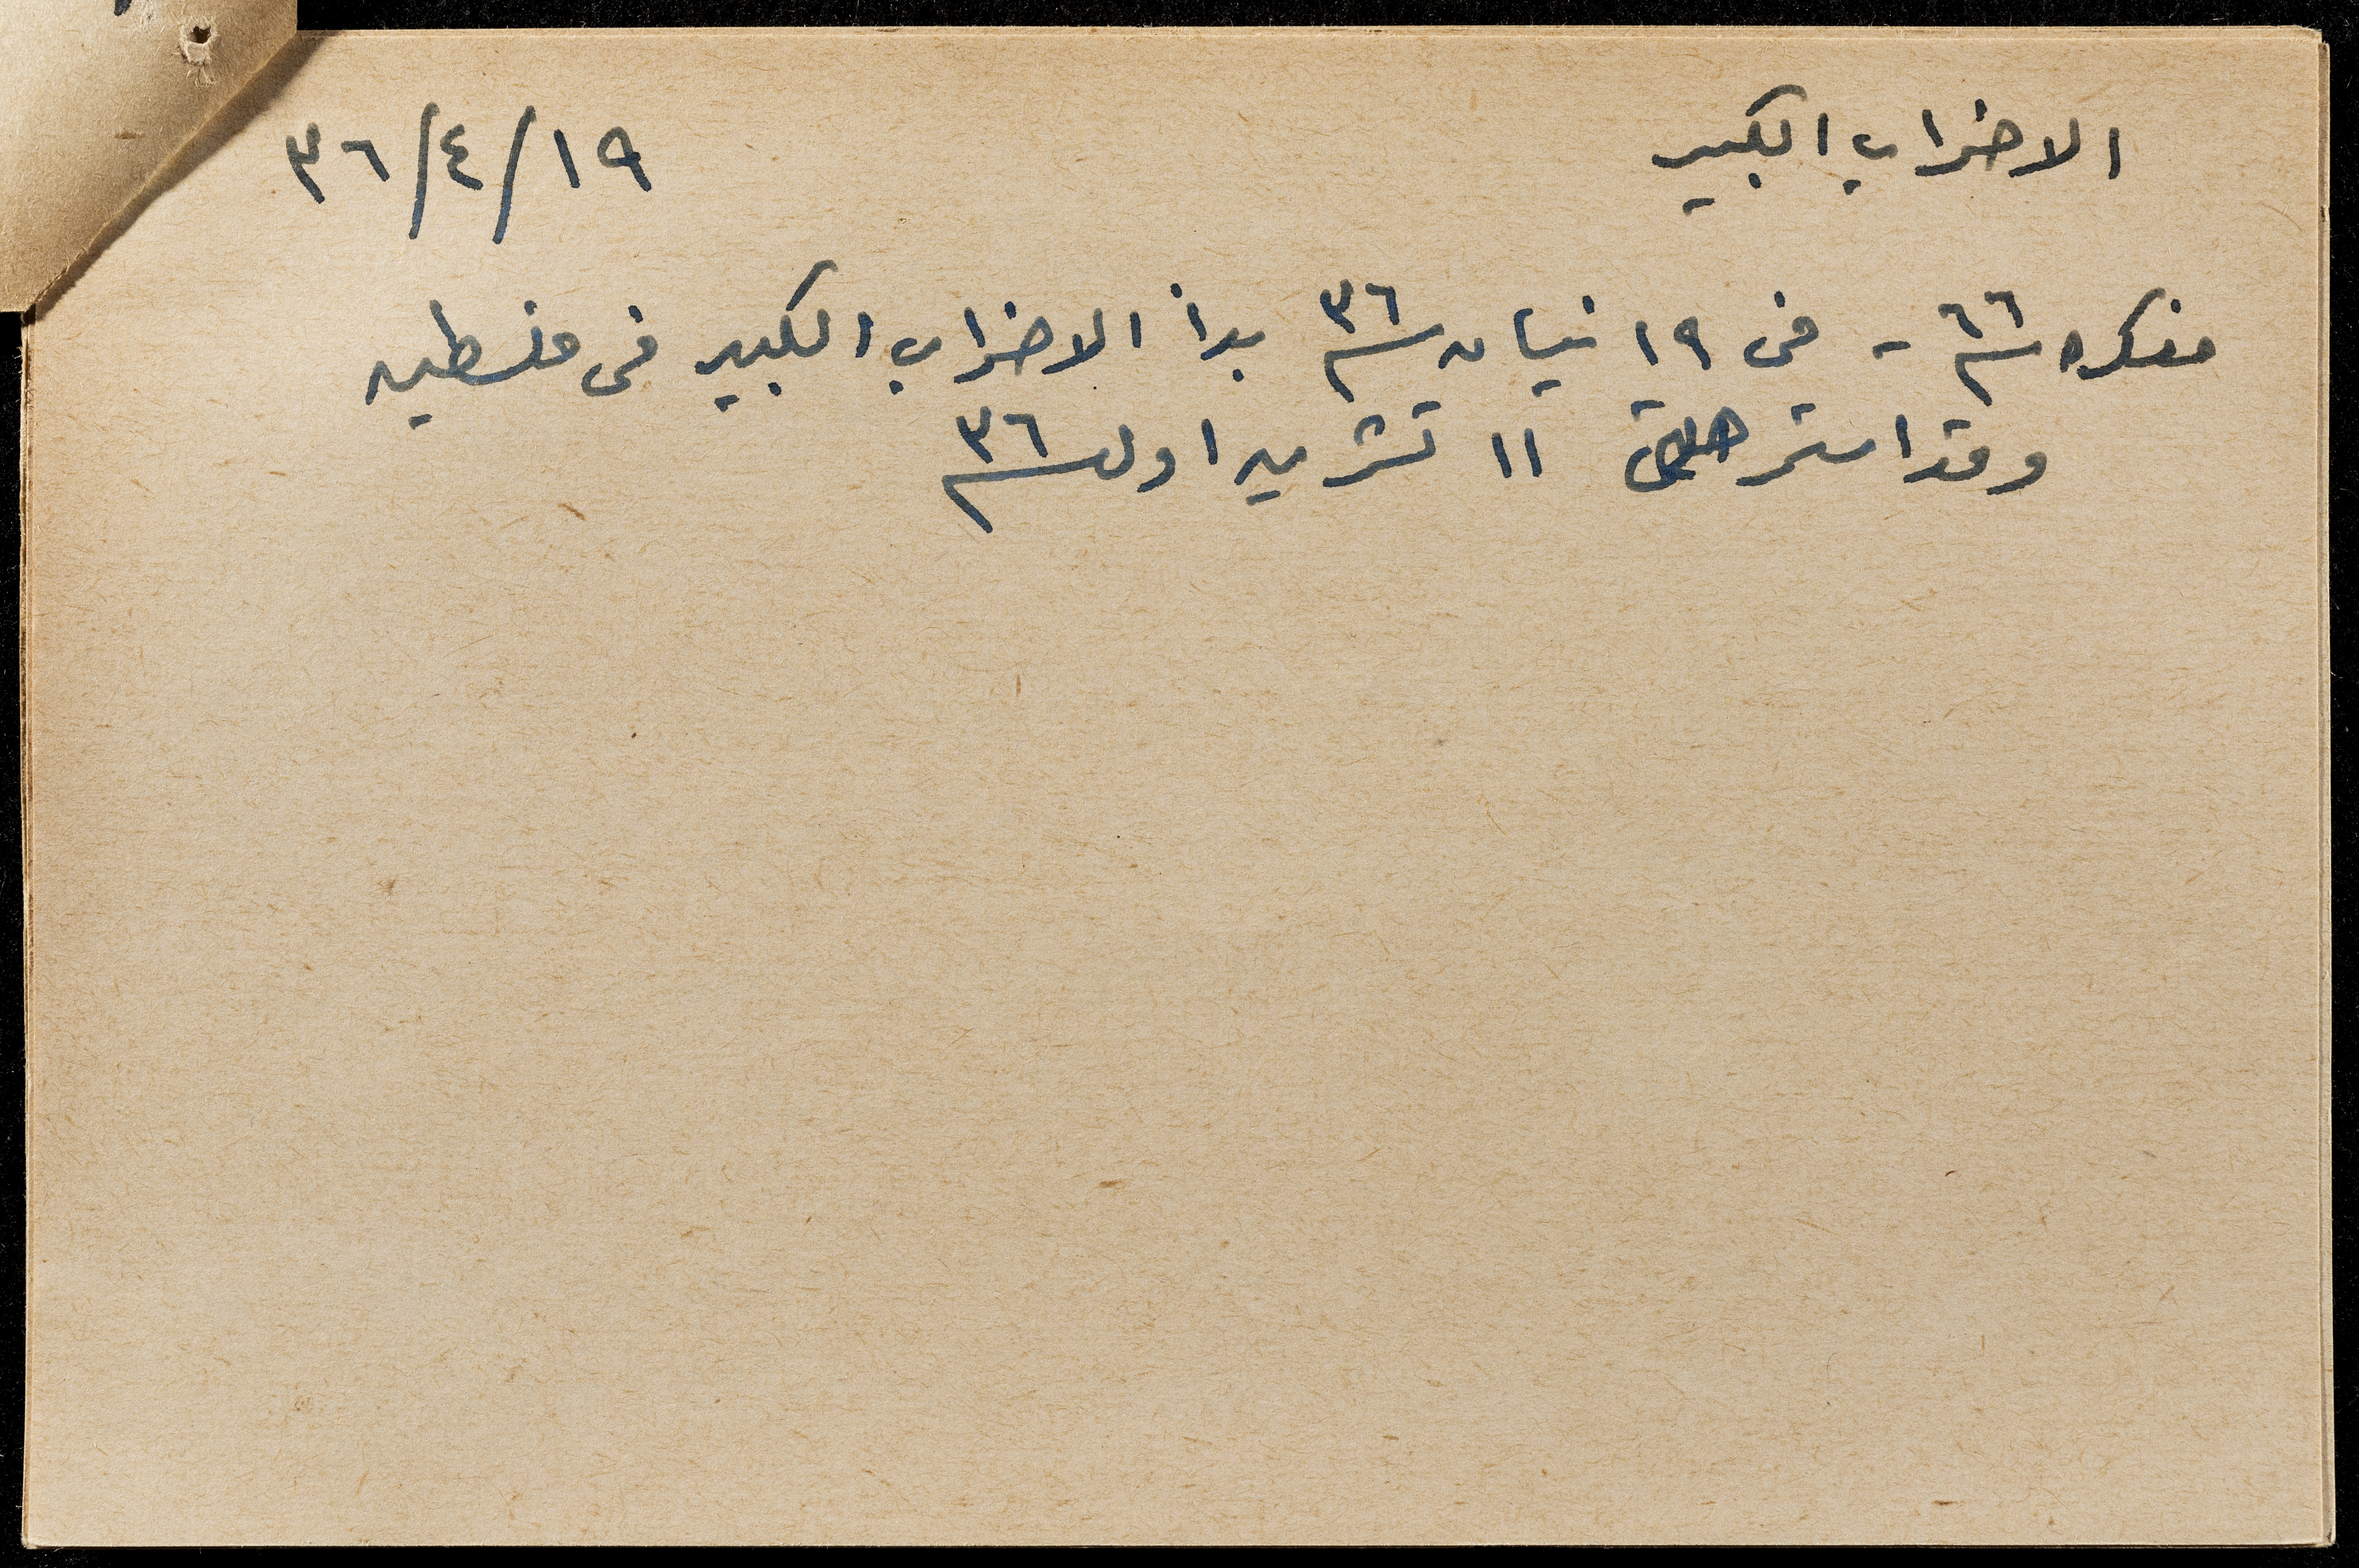 الاضراب الكبير ١٩/٤/٣٦
مفكره سنة ٦٦ - فى ١٩ نيسان سنة ٣٦ بدأ الاضراب الكبير فى فلسطين
وقد استمر حتى ١١ تشرين اول سنة ٣٦